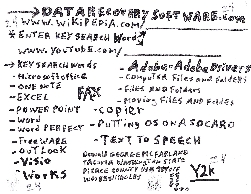 → DATA RECOVERY SOFTWARE.COM
WWW.WIKIPEDIA.COM/
* ENTER KEY SEARCH Words
WWW.YOUTUBE.COM/
→ KEY SEARCH Words
- Microsoft office
- ONE NOTE
- EXCEL
FAX
- POWERPOINT
- Word
- Word PERFECT
- FREEWARE
- OUTLOOK
- VISIO
- WORKS
* Adobe-Adobe Drivers
- COMPUTER FILES AND FOLDERS
- FILES AND FOLDERS
- MOVING FILES AND FOLDERS
- COPIER
- PUTTING OS ON A SD CARD
- TEXT TO SPEECH
DONALD GEORGE MCFARLANE
TACOMA WASHINGTON STATE
PIERCE COUNTY
Y2K